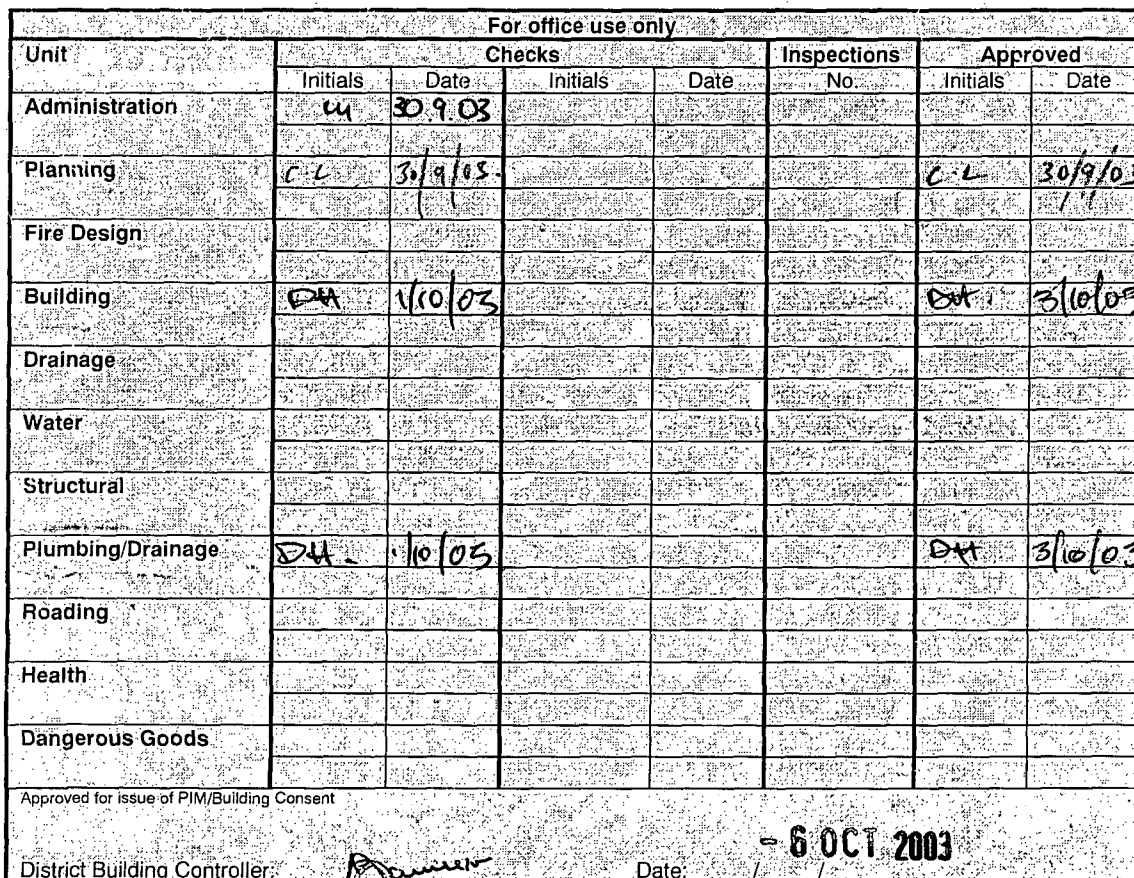 For office use only
Unit Checks Inspections Approved
Initials Date Initials Date No. Initials Date
Administration 30.9.03
Planning C.L 30/9/03. C.L 30/9/03
Fire Design
Building DH 1/10/03 DH 3/10/03
Drainage
Water
Structural
Plumbing/Drainage DH. 1/10/03 DH 3/10/03
Roading
Health
Dangerous Goods
Approved for issue of PIM/Building Consent
- 6 OCT 2003
District Building Controller: Date: / /